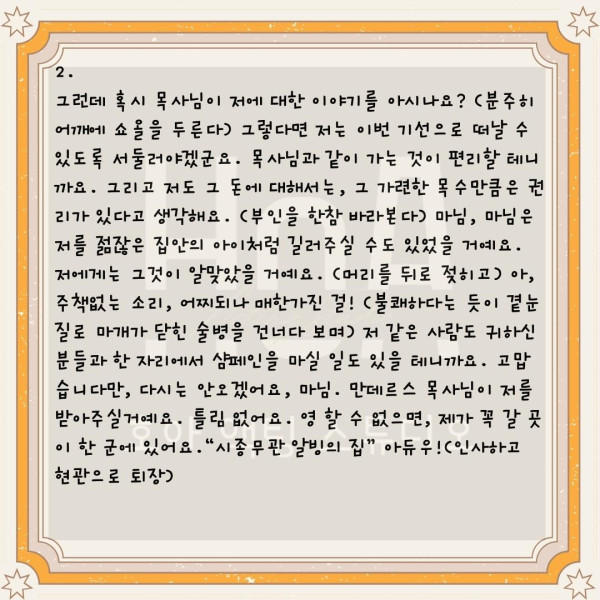 2.
그런데 혹시 목사님이 저에 대한 이야기를 아시나요? (분주히
어깨에 쇼올을 두른다) 그렇다면 저는 이번 기선으로 떠날 수
있도록 서둘러야겠군요. 목사님과 같이 가는 것이 편리할 테니
까요. 그리고 저도 그 돈에 대해서는, 그 가련한 목수만큼은 권
리가 있다고 생각해요. (부인을 한참 바라본다) 마님, 마님은
저를 점잖은 집안의 아이처럼 길러주실 수도 있었을 거예요.
저에게는 그것이 알맞았을 거예요. (머리를 뒤로 젖히고) 아,
주책없는 소리, 어찌되나 매한가진 걸! (불쾌하다는 듯이 곁눈
질로 마개가 닫힌 술병을 건너다 보며) 저 같은 사람도 귀하신
분들과 한 자리에서 샴페인을 마실 일도 있을 테니까요. 고맙
습니다만, 다시는 안오겠어요, 마님. 만데르스 목사님이 저를
받아주실거예요. 틀림없어요. 영 할 수 없으면, 제가 꼭 갈 곳
이 한 군데 있어요.“시종무관 알빙의 집” 아듀우!(인사하고
현관으로 퇴장)
HnA
액팅 스튜디오